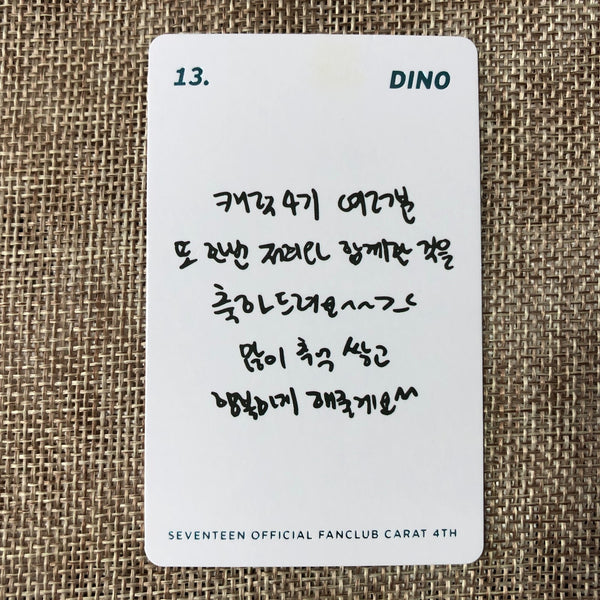 13. DINO
캐럿 4기 여러분
또 한번 저희와 함께한 것을
축하드려요~~ㄱㄴ
많이 추억 쌓고
행복하게 해줄게요~~
SEVENTEEN OFFICIAL FANCLUB CARAT 4TH